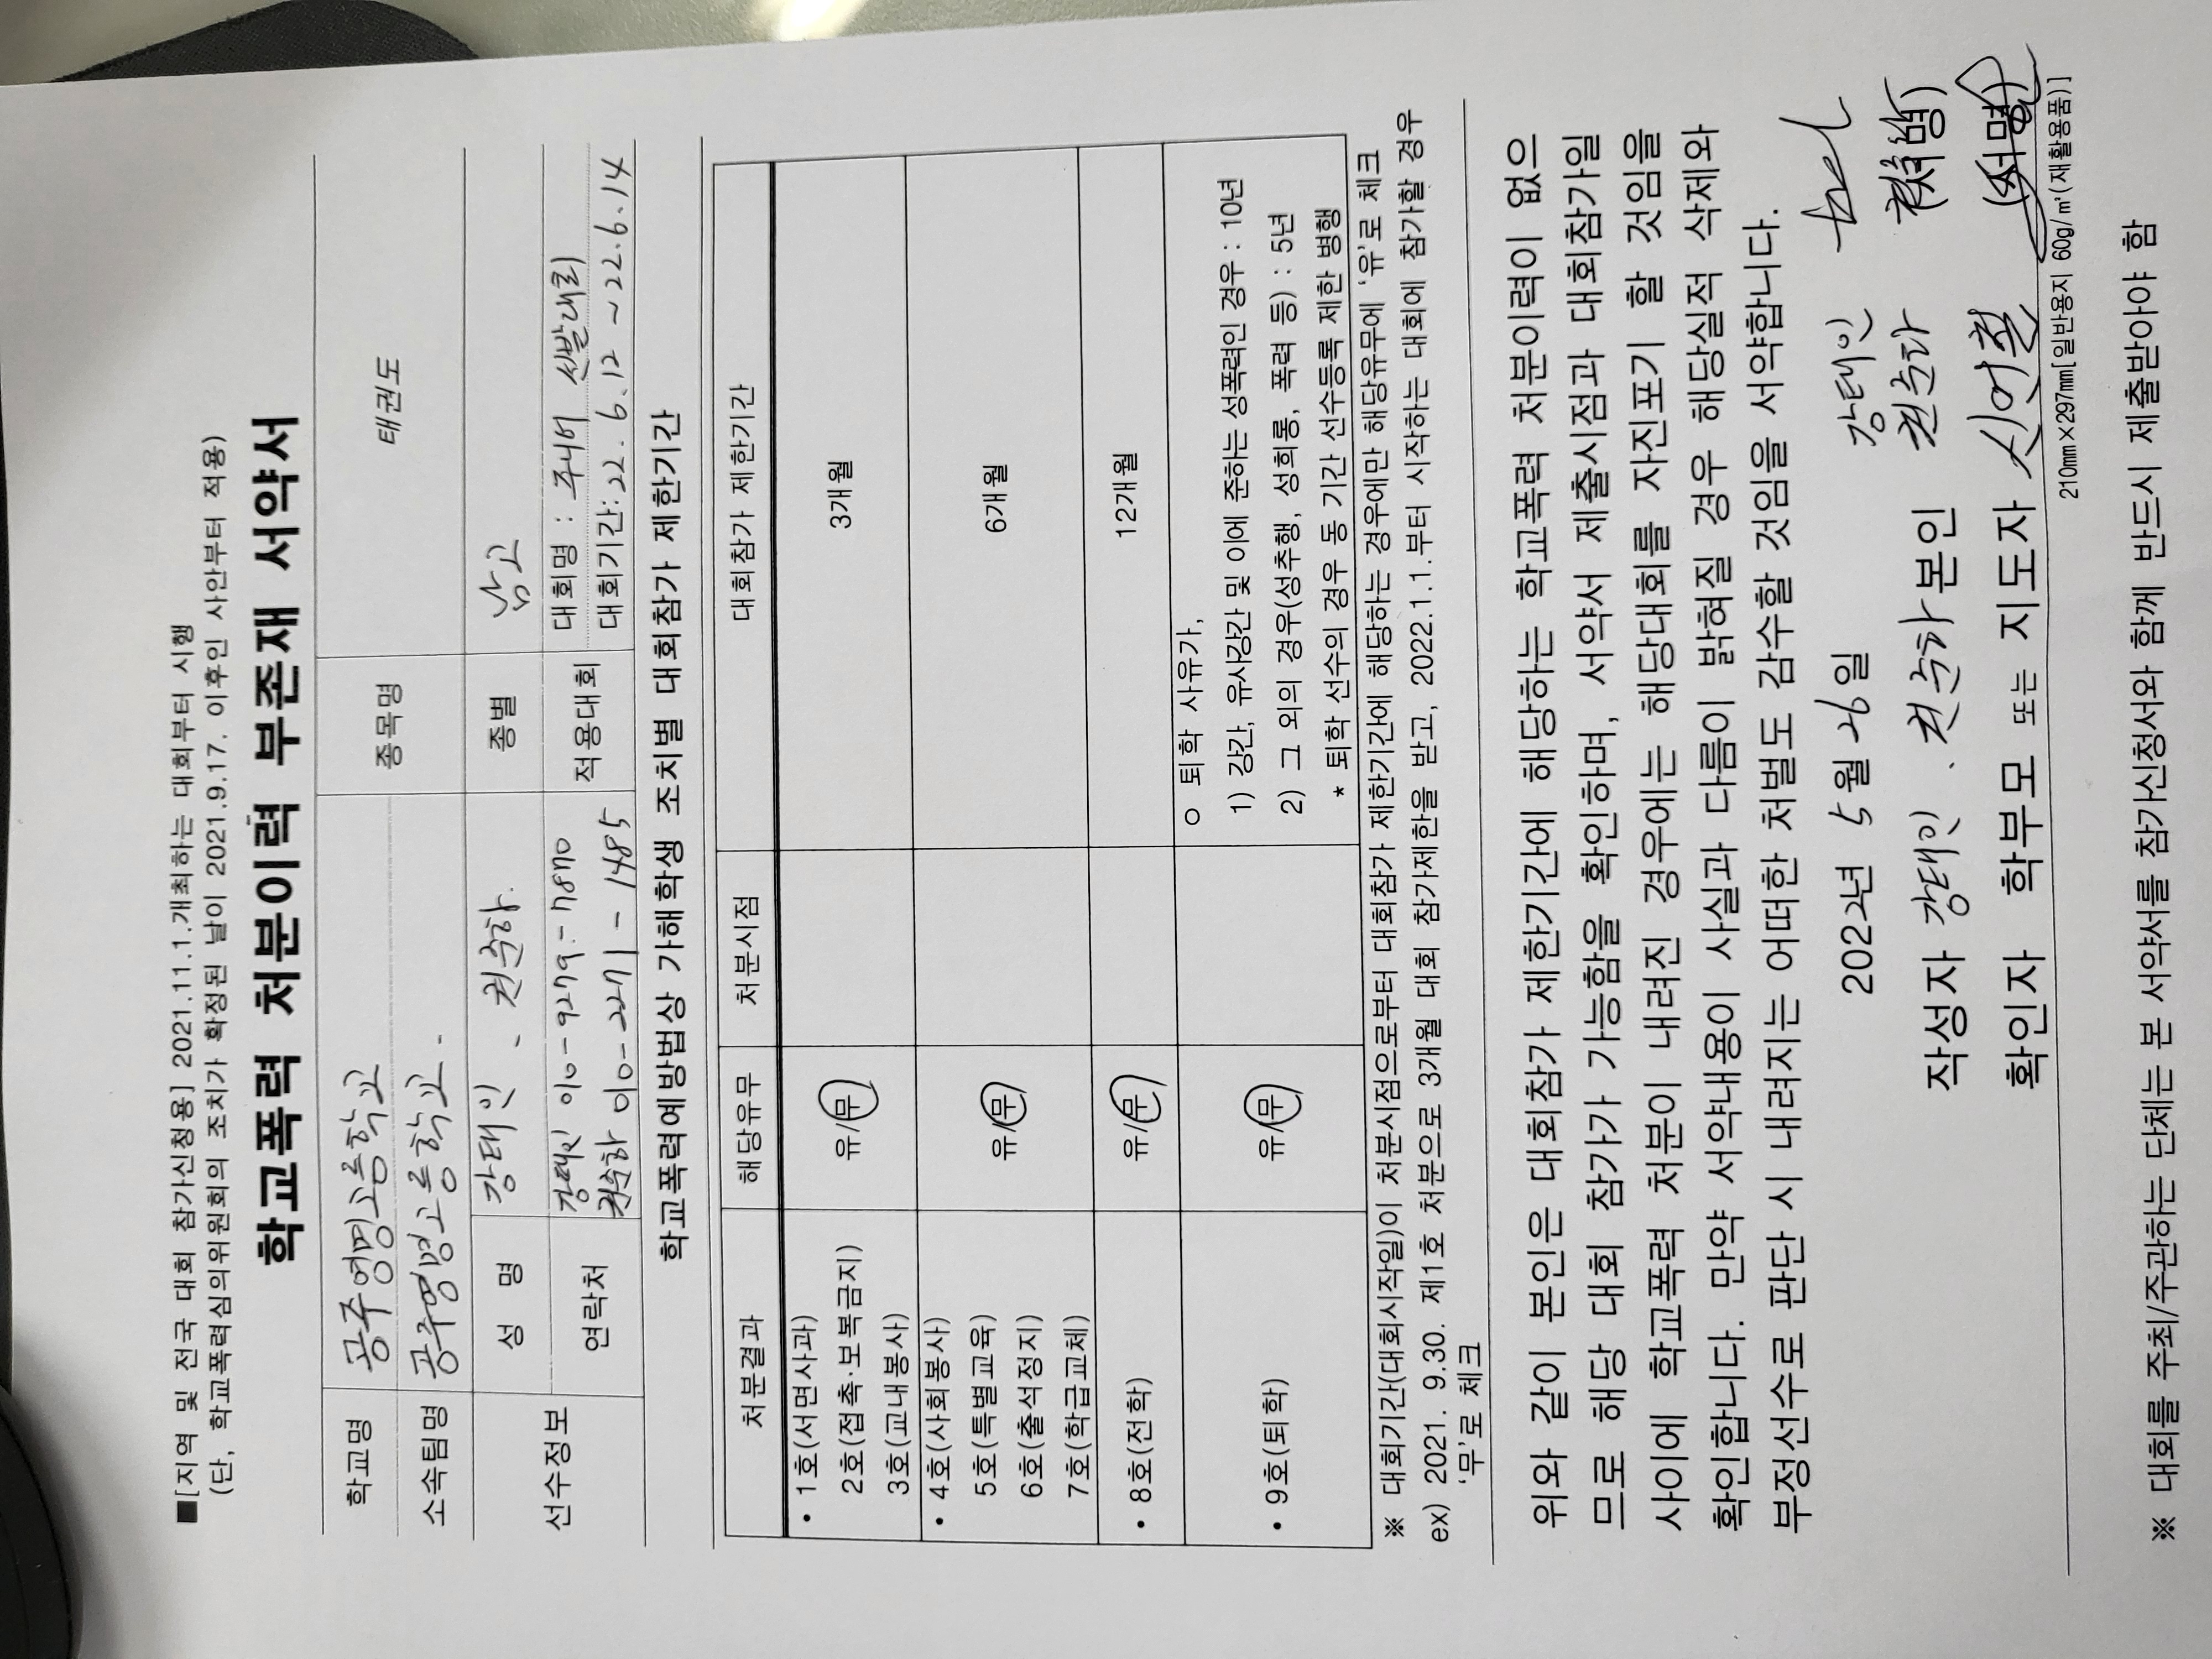 ■[지역 및 전국 대회 참가신청용] 2021.11.1.개최하는 대회부터 시행
(단, 학교폭력심의위원회의 조치가 확정된 날이 2021.9.17. 이후인 사안부터 적용)
학교폭력 처분이력 부존재 서약서
학교명 공주영명고등학교 종목명 태권도
소속팀명 공주영명고등학교.
선수정보 성 명 강태인 、 권순하. 종별 남고
연락처 강태인 010-9279-7870 적용대회 대회명 : 주니어 선발대회
권순하 010-2271-1485 대회기간:22. 6. 12 ~22. 6. 14
학교폭력예방법상 가해학생 조치별 대회참가 제한기간
처분결과 해당유무 처분시점 대회참가 제한기간
• 1호(서면사과)
2호(접촉·보복금지) 유/무 3개월
3호(교내봉사)
• 4호(사회봉사)
5호(특별교육) 유/무 6개월
6호(출석정지)
7호(학급교체)
• 8호(전학) 유/무 12개월
• 9호(퇴학) 유/무
ㅇ 퇴학 사유가,
1) 강간, 유사강간 및 이에 준하는 성폭력인 경우 : 10년
2) 그 외의 경우(성추행, 성희롱, 폭력 등) : 5년
* 퇴학 선수의 경우 동 기간 선수등록 제한 병행
※ 대회기간(대회시작일)이 처분시점으로부터 대회참가 제한기간에 해당하는 경우에만 해당유무에 '유'로 체크
ex) 2021. 9.30. 제1호 처분으로 3개월 대회 참가제한을 받고, 2022.1.1.부터 시작하는 대회에 참가할 경우
'무'로 체크
위와 같이 본인은 대회참가 제한기간에 해당하는 학교폭력 처분이력이 없으
므로 해당 대회 참가가 가능함을 확인하며, 서약서 제출시점과 대회참가일
사이에 학교폭력 처분이 내려진 경우에는 해당대회를 자진포기 할 것임을
확인합니다. 만약 서약내용이 사실과 다름이 밝혀질 경우 해당실적 삭제와
부정선수로 판단 시 내려지는 어떠한 처벌도 감수할 것임을 서약합니다.
2022년 5월 26일
강태인
작성자 강태인 、 권순하 본인 권순하 (서명)
확인자 학부모 또는 지도자 (서명)
210㎜×297㎜[일반용지 60g/㎡(재활용품)]
※ 대회를 주최/주관하는 단체는 본 서약서를 참가신청서와 함께 반드시 제출받아야 함